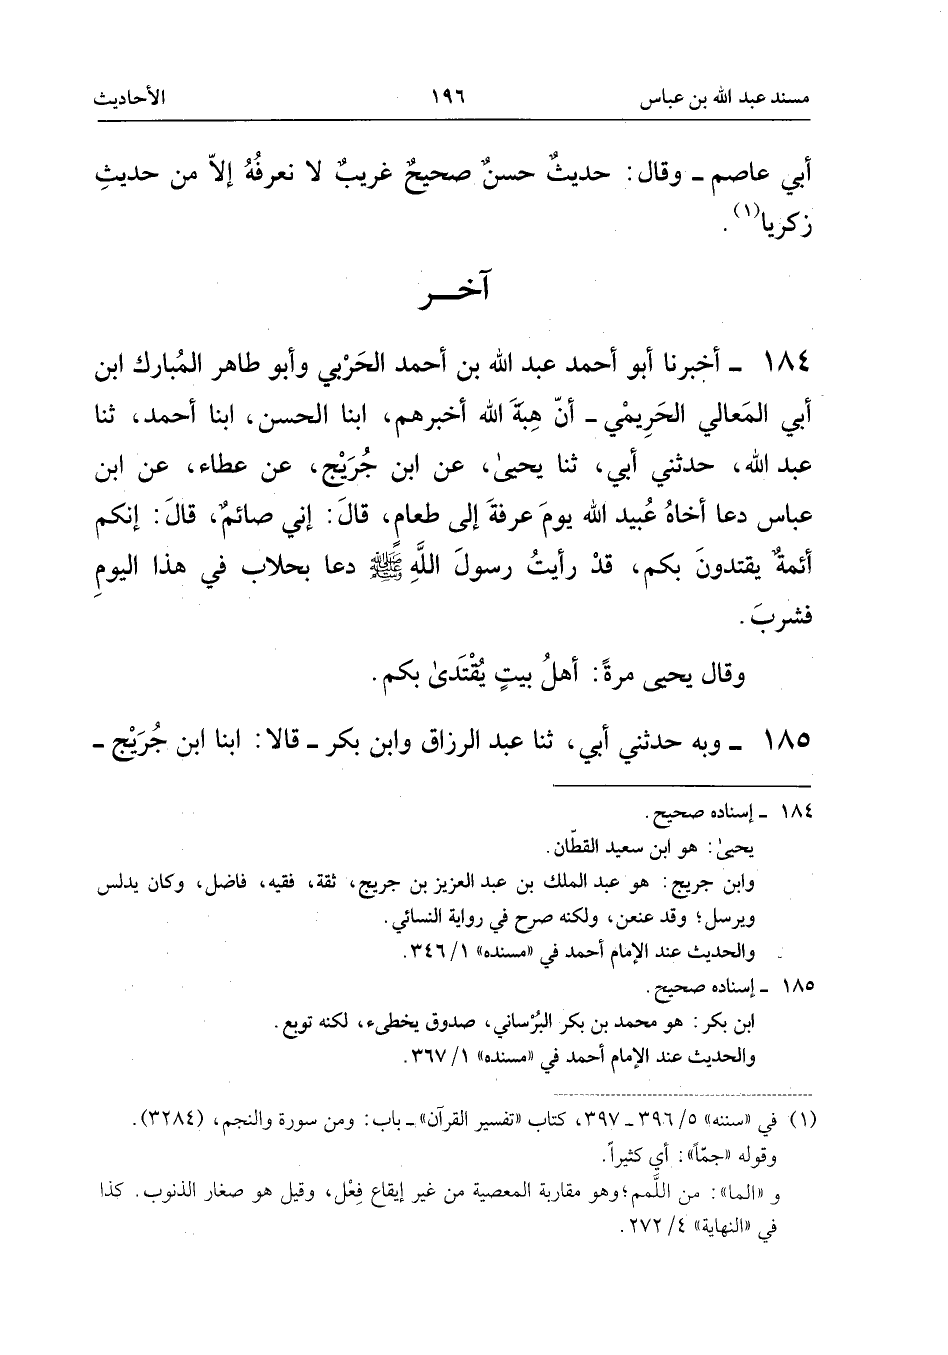 مسند عبد الله بن عباس ١٩٦ الأحاديث
أبي عاصم ـ وقال: حديثٌ حسنٌ صحيحٌ غريبٌ لا نعرفُهُ إلاّ من حديثِ
زكريا(١).
آخـــر
١٨٤ ـ أخبرنا أبو أحمد عبد الله بن أحمد الحَرْبي وأبو طاهر المُبارك ابن
أبي المَعالي الحَرِيمْي ـ أنّ هِبَةَ الله أخبرهم، ابنا الحسن، ابنا أحمد، ثنا
عبد الله، حدثني أبي، ثنا يحيىٰ، عن ابن جُرَيْج، عن عطاء، عن ابن
عباس دعا أخاهُ عُبيد الله يومَ عرفةَ إلى طعامٍ، قالَ: إني صائمٌ، قالَ: إنكم
أئمةٌ يقتدونَ بكم، قدْ رأيتُ رسولَ اللَّهِ ﷺ دعا بحلاب في هذا اليومِ
فشربَ.
وقال يحيى مرةً: أهلُ بيتٍ يُقْتَدىٰ بكم.
١٨٥ ـ وبه حدثني أبي، ثنا عبد الرزاق وابن بكر ـ قالا: ابنا ابن جُرَيْج ـ
١٨٤ ـ إسناده صحيح.
يحيىٰ: هو ابن سعيد القطّان.
وابن جريج: هو عبد الملك بن عبد العزيز بن جريج، ثقة، فقيه، فاضل، وكان يدلس
ويرسل؛ وقد عنعن، ولكنه صرح في رواية النسائي.
والحديث عند الإمام أحمد في «مسنده» ١/ ٣٤٦.
١٨٥ ـ إسناده صحيح.
ابن بكر: هو محمد بن بكر البُرْساني، صدوق يخطىء، لكنه توبع.
والحديث عند الإمام أحمد في «مسنده» ١/ ٣٦٧.
(١) في «سننه» ٥/ ٣٩٦ ـ ٣٩٧، كتاب «تفسير القرآن» ـ باب: ومن سورة والنجم، (٣٢٨٤).
وقوله «جمّاً»: أي كثيراً.
و «الما»: من اللَّمم؛ وهو مقاربة المعصية من غير إيقاع فِعْل، وقيل هو صغار الذنوب. كذا
في «النهاية» ٤/ ٢٧٢.